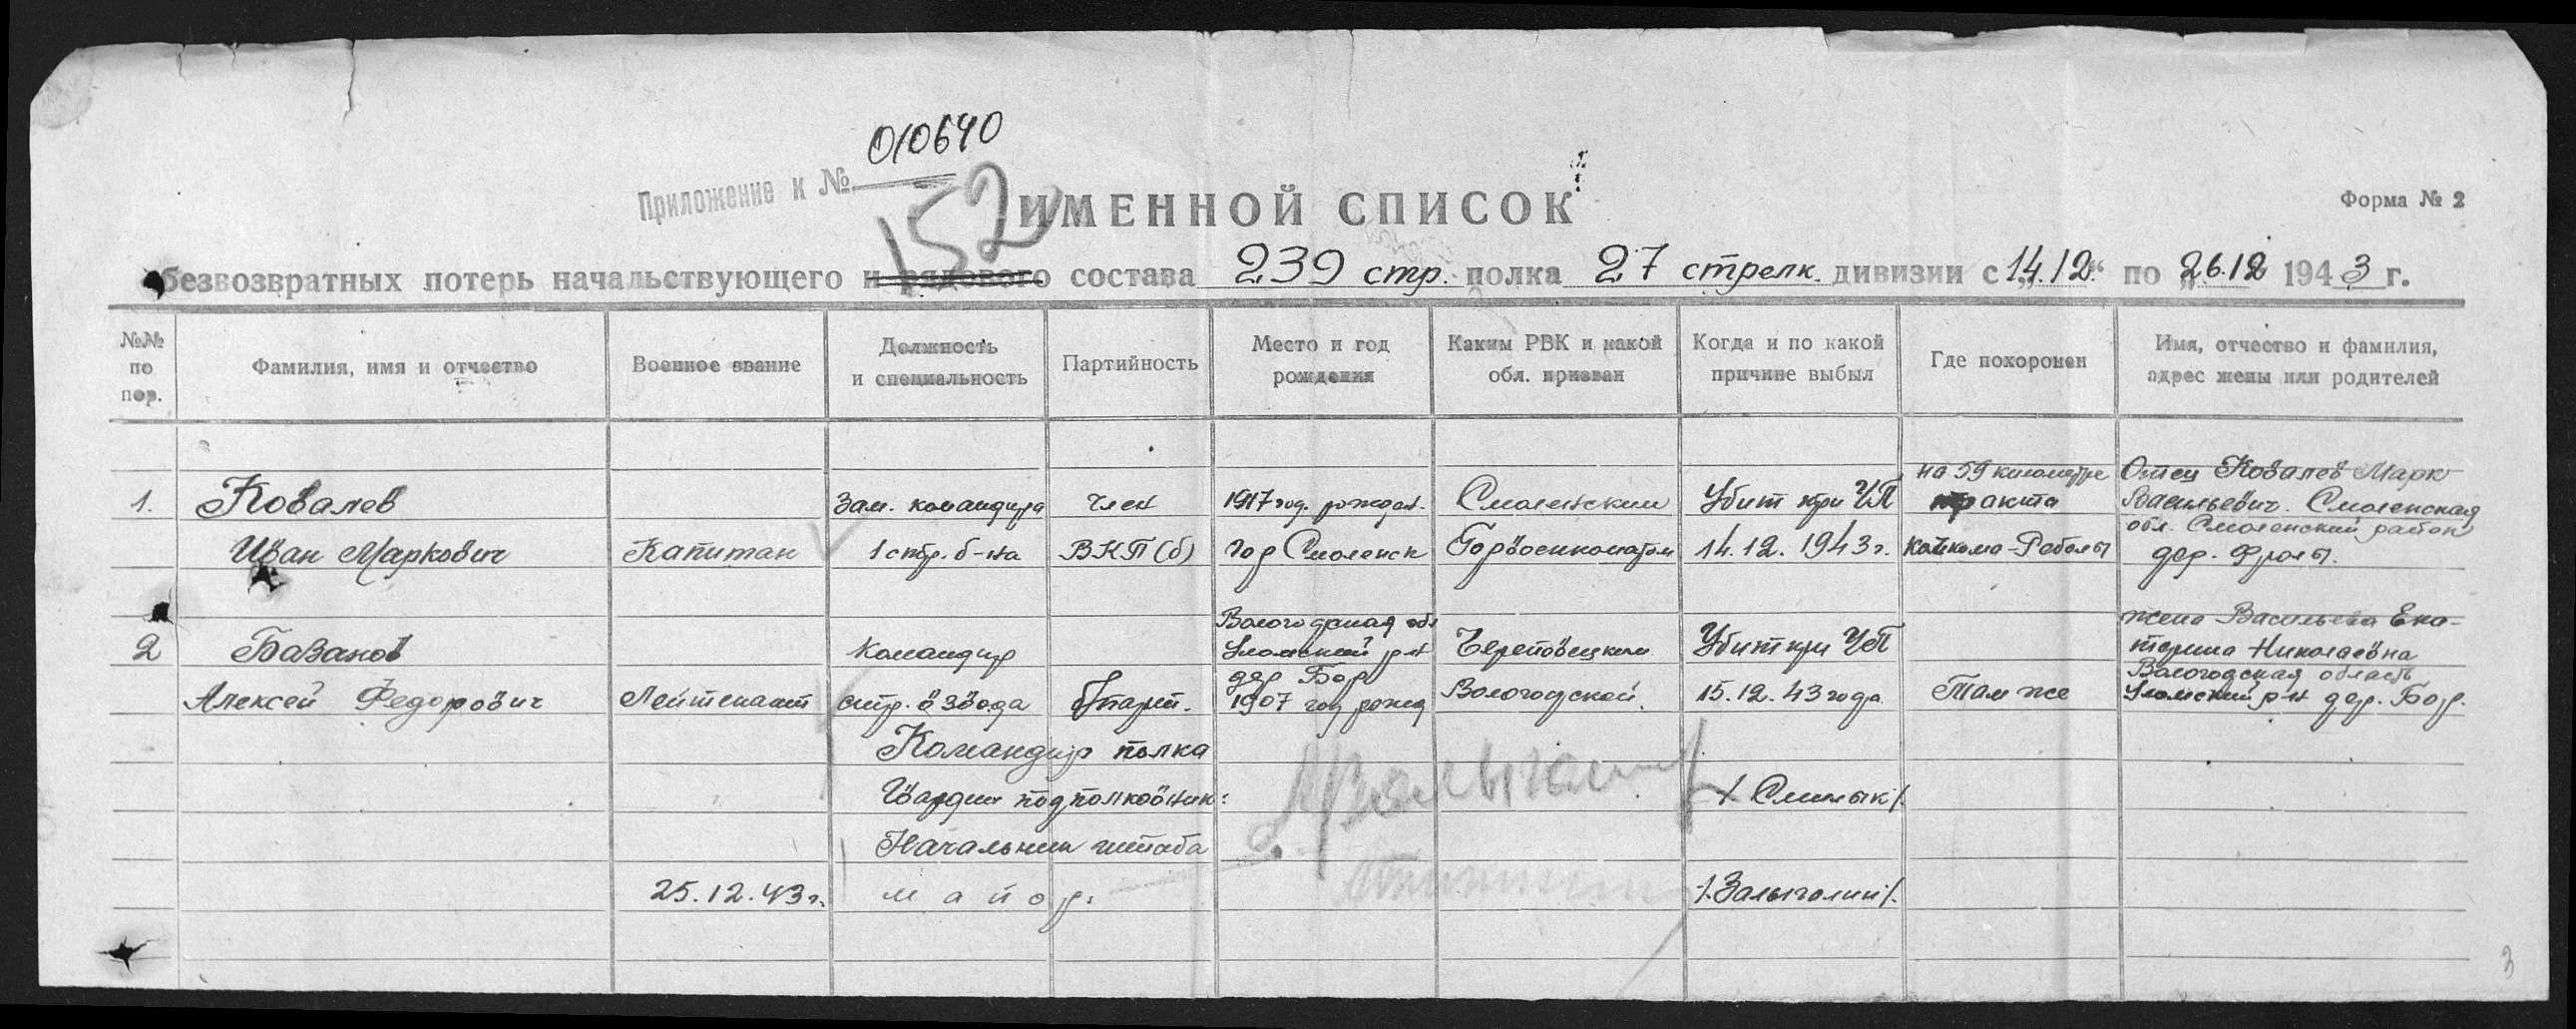 010640
Приложение к №
152
ИМЕННОЙ СПИСОК
Форма № 2
безвозвратных потерь начальствующего и рядового состава 239 стр. полка 27 стрелк. дивизии с „14.12“ по „26.12 1943 г.
№№ по пор.
Фамилия, имя и отчество
Военное звание
Должность и специальность
Партийность
Место и год рождения
Каким РВК и какой обл. призван
Когда и по какой причине выбыл
Где похоронен
Имя, отчество и фамилия, адрес жены или родителей
1.
Ковалев
Иван Маркович
Капитан
Зам. командира
1 стр. б-на
член
ВКП(б)
1917 год. рожден.
гор Смоленск
Смоленским
Горвоенкоматом
Убит при ЧП
14.12.1943 г.
на 59 километре
тракта
Кочкома-Реболы
Отец Ковалев Марк
Васильевич. Смоленская
обл. Смоленский район
дер. Фролы.
2
Базанов
Алексей Федорович
Лейтенант
Командир
стр. взвода
б/парт.
Вологодская обл
Уломский р-н
дер Бор
1907 год рожд
Череповецким
Вологодской.
Убит при ЧП
15.12.43 года
Там же
жена Васильева Ека-
терина Николаевна
Вологодская область
Уломский р-н дер. Бор.
Командир полка
Гвардии подполковник:
/ Смилык /.
Начальник штаба
25.12.43 г.
майор:
3